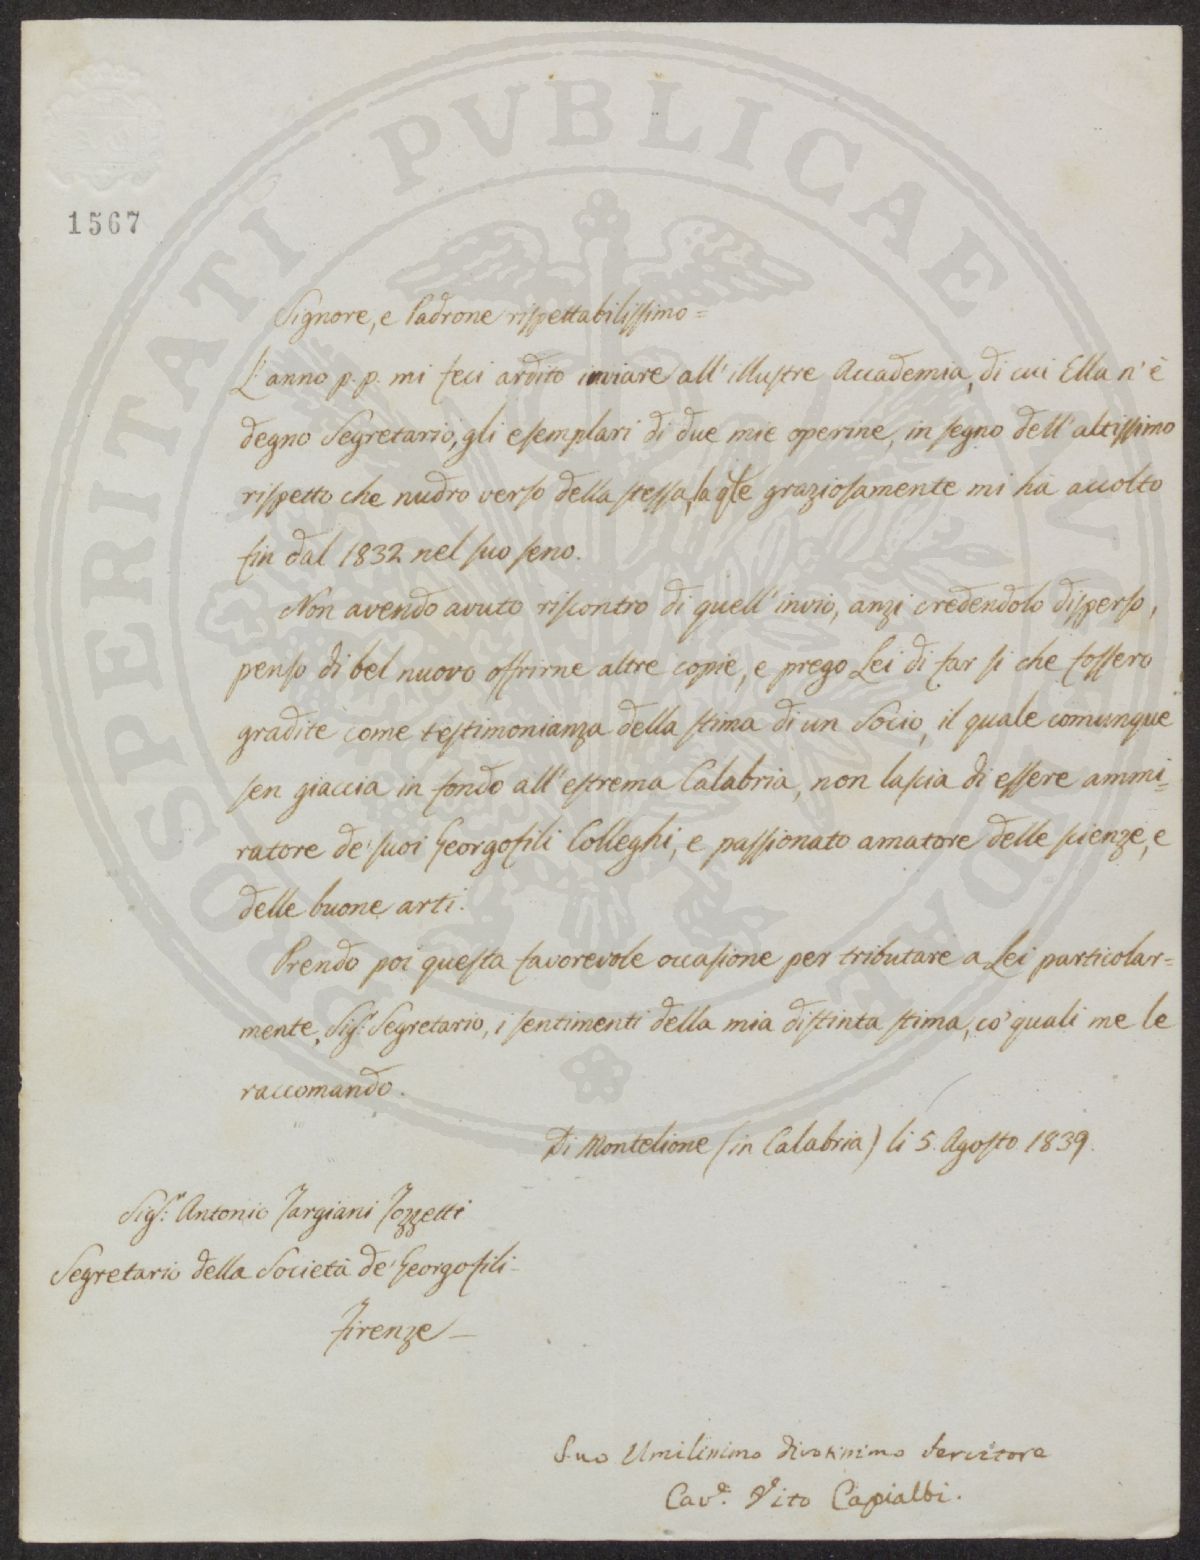 PROSPERITATI PVBLICAE AVGENDAE
1567
Signore, e Padrone rispettabilissimo=
L'anno p. p. mi feci ardito inviare all'illustre Accademia, di cui Ella n'è
degno Segretario, gli esemplari di due mie operine, in segno dell'altissimo
rispetto che nudro verso della stessa, la qle graziosamente mi ha accolto
fin dal 1832 nel suo seno.
Non avendo avuto riscontro di quell'invio, anzi credendolo disperso,
penso di bel nuovo offrirne altre copie, e prego Lei di far si che fossero
gradite come testimonianza della stima di un Socio, il quale comunque
sen giaccia in fondo all'estrema Calabria, non lascia di essere ammi=
ratore de' suoi Georgofili Colleghi, e passionato amatore delle scienze, e
delle buone arti.
Prendo poi questa favorevole occasione per tributare a Lei particolar=
mente, Sigr. Segretario, i sentimenti della mia distinta stima, co' quali me le
raccomando.
Di Montelione (in Calabria) li 5. Agosto 1839.
Sigr. Antonio Targiani Tozzetti
Segretario della Società de' Georgofili
Firenze
Suo Umilissimo divotissimo Servitore
Cave. Vito Capialbi.